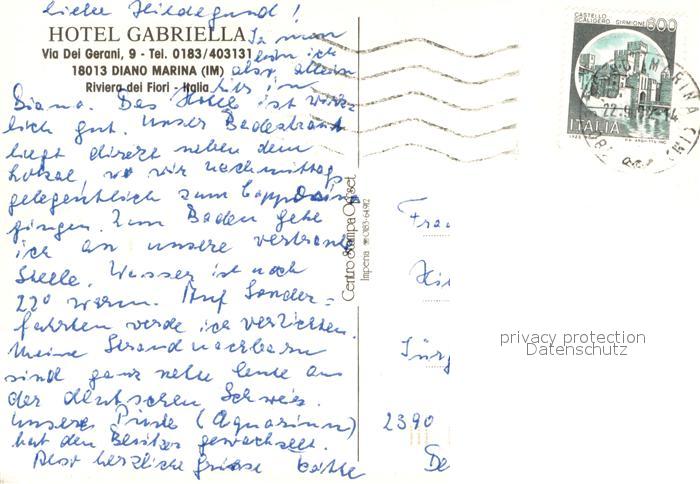 Liebe Hildegund!
HOTEL GABRIELLA
Via Dei Gerani, 9 - Tel. 0183/403131
18013 DIANO MARINA (IM)
Riviera dei Fiori - Italia
bin ich
also allein
hier in
Diana. Das Hotel ist wirk-
lich gut. Unser Badestrand
liegt direkt neben dem
Hotel wo wir nachmittags
gelegentlich zum
gingen. Zum Baden gehe
ich an unsere vertraute
Stelle. Wasser ist noch
22° warm. Auf Sonder=
fahrten werde ich verzichten.
Meine Strandnachbarn
sind ganz nette Leute aus
der deutschen Schweiz.
Unsere Pinte (Aquarium)
hat den Besitzer gewechselt.
Also herzliche Grüsse Käthe
Centro Stampa Offset
Imperia ☎ 0183-64912
CASTELLO SCALIGERO SIRMIONE 600
ITALIA
Frau
Hi
Jürg
2390
privacy protection
Datenschutz